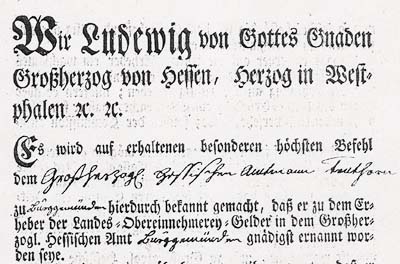 Wir Ludewig von Gottes Gnaden
Großherzog von Hessen, Herzog in West⸗
phalen ꝛc. ꝛc.
Es wird auf erhaltenen besonderen höchsten Befehl
dem Großherzogl. Hessischen Amtmann
zu Burggemünden hierdurch bekannt gemacht, daß er zu dem Er⸗
heber der Landes⸗Obereinnehmerey⸗Gelder in dem Großher⸗
zogl. Hessischen Amt Burggemünden gnädigst ernannt wor⸗
den seye.